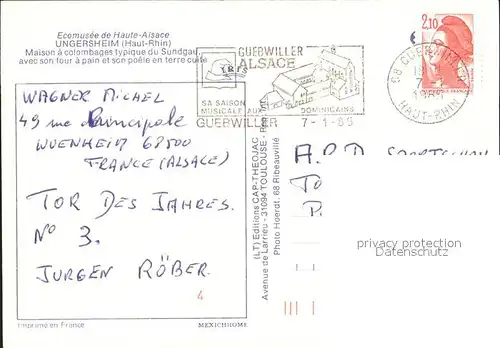 Ecomusée de Haute-Alsace
UNGERSHEIM (Haut-Rhin)
Maison à colombages typique du Sundgau,
avec son four à pain et son poêle en terre cuite
WAGNER MICHEL
49 rue Principale
WUENHEIM 68500
FRANCE (ALSACE)
TOR DES JAHRES.
No 3.
JURGEN RÖBER
4
Imprimé en France
MEXICHROME
GUEBWILLER
ALSACE
SA SAISON
MUSICALE AUX
DOMINICAINS
GUEBWILLER 7-1-86
68 GUEBWILLER
HAUT-RHIN
2,10
(LT) Editions CAP-THEOJAC
Avenue de Larrieu - 31094 TOULOUSE
Photo Hoerdt. 68 Ribeauvillé
A.R.D
TO
P.
privacy protection
Datenschutz